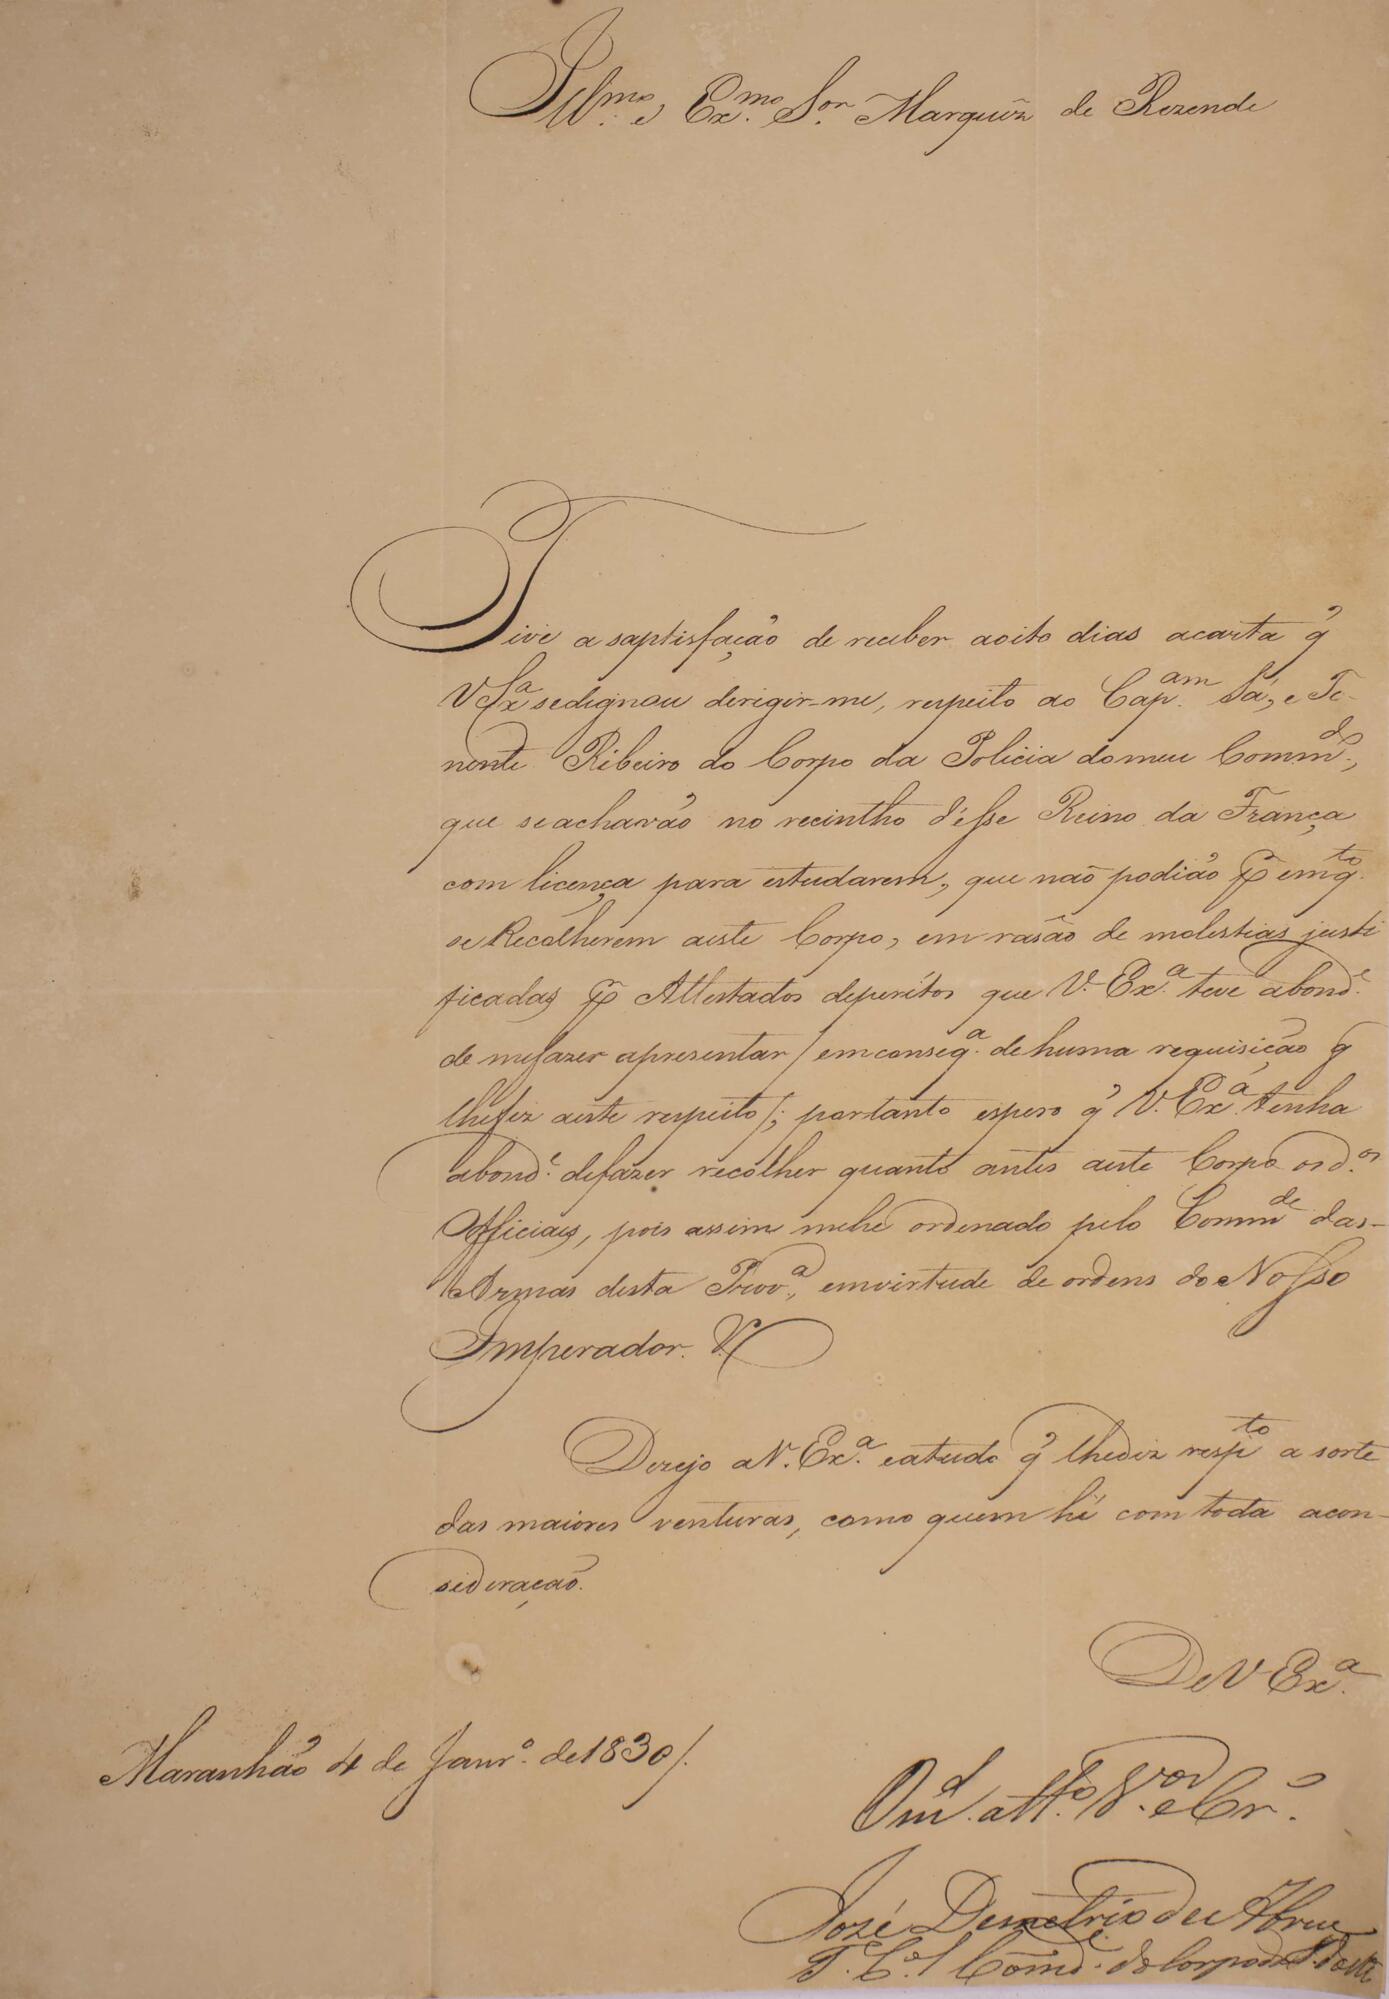 Illmo. e Exmo. Sor. Marquêz de Rezende
Tive a saptisfação de receber aoito dias acarta q̃
V Exa sedignou derigir-me, respeito ao Capam. Sá, e Te-
nente Ribeiro do Corpo da Policia domeu Commdo.,
que seachavão no recintho d'ésse Reino da França
com licença para estudarem, que não podião p̃ emqto.
se Recolherem aeste Corpo, em rasão de molestias justi
ficadas p̃ Attestados deperítos que V. Exa. teve abonde.
de mefazer apresentar / emconseqa. de huma requisição q̃
lhefiz aeste respeito /; portanto espero q̃ V. Exa. tenha
abonde. defazer recolher quanto antes aeste Corpo osdos.
Officiaes, pois assim mehe ordenado pelo Commde das-
Armas desta Prova., emvirtude de ordens do Nosso
Imperador.
Dezejo a V. Exa. eatudo q̃ lhediz respto a sorte
das maiores venturas, como quem hé com toda acon-
sideração.
De V Exa.
Maranhão 4 de Janro. de 1830 /.
atto. Vor. e Cro.
José Demetrio de Abreu
T. Cel. Comde. do Corpo de